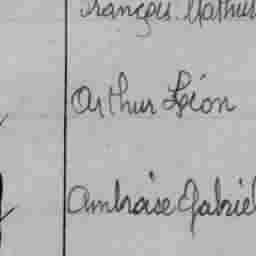 François Mathu
Arthur Léon
Ambroise Gabriel